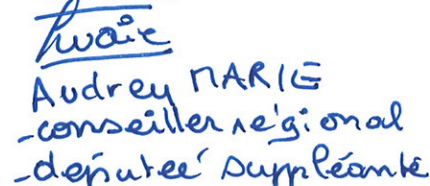 Audrey MARIE
-conseiller régional
-députeé suppléante